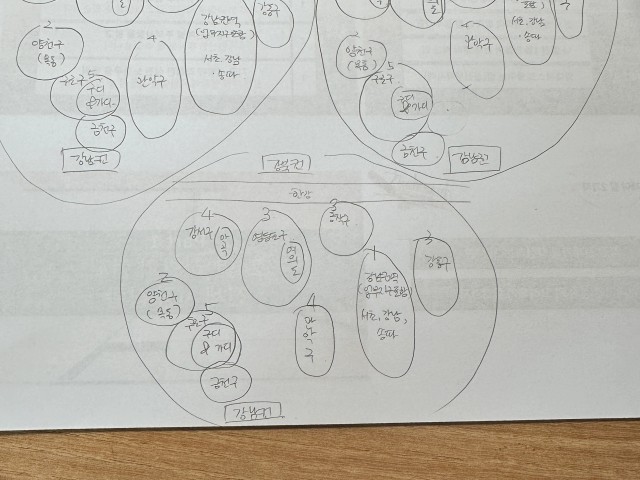 2
양천구
(목동)
5
구로구
구디
&가디
금천구
강남권
4
관악구
강남권역
(업무지구포함)
서초, 강남
, 송파
강동구
2
양천구
(목동)
5
구로구
구디
&가디
금천구
강남권
4
관악구
포함)
서초, 강남
송파
강북권
한강
4
강서구
마곡
3
영등포구
여의도
3
동작구
1
강남권역
(업무지구포함)
서초, 강남,
송파
3
강동구
2
양천구
(목동)
5
구로구
구디
& 가디
금천구
4
관악구
강남권